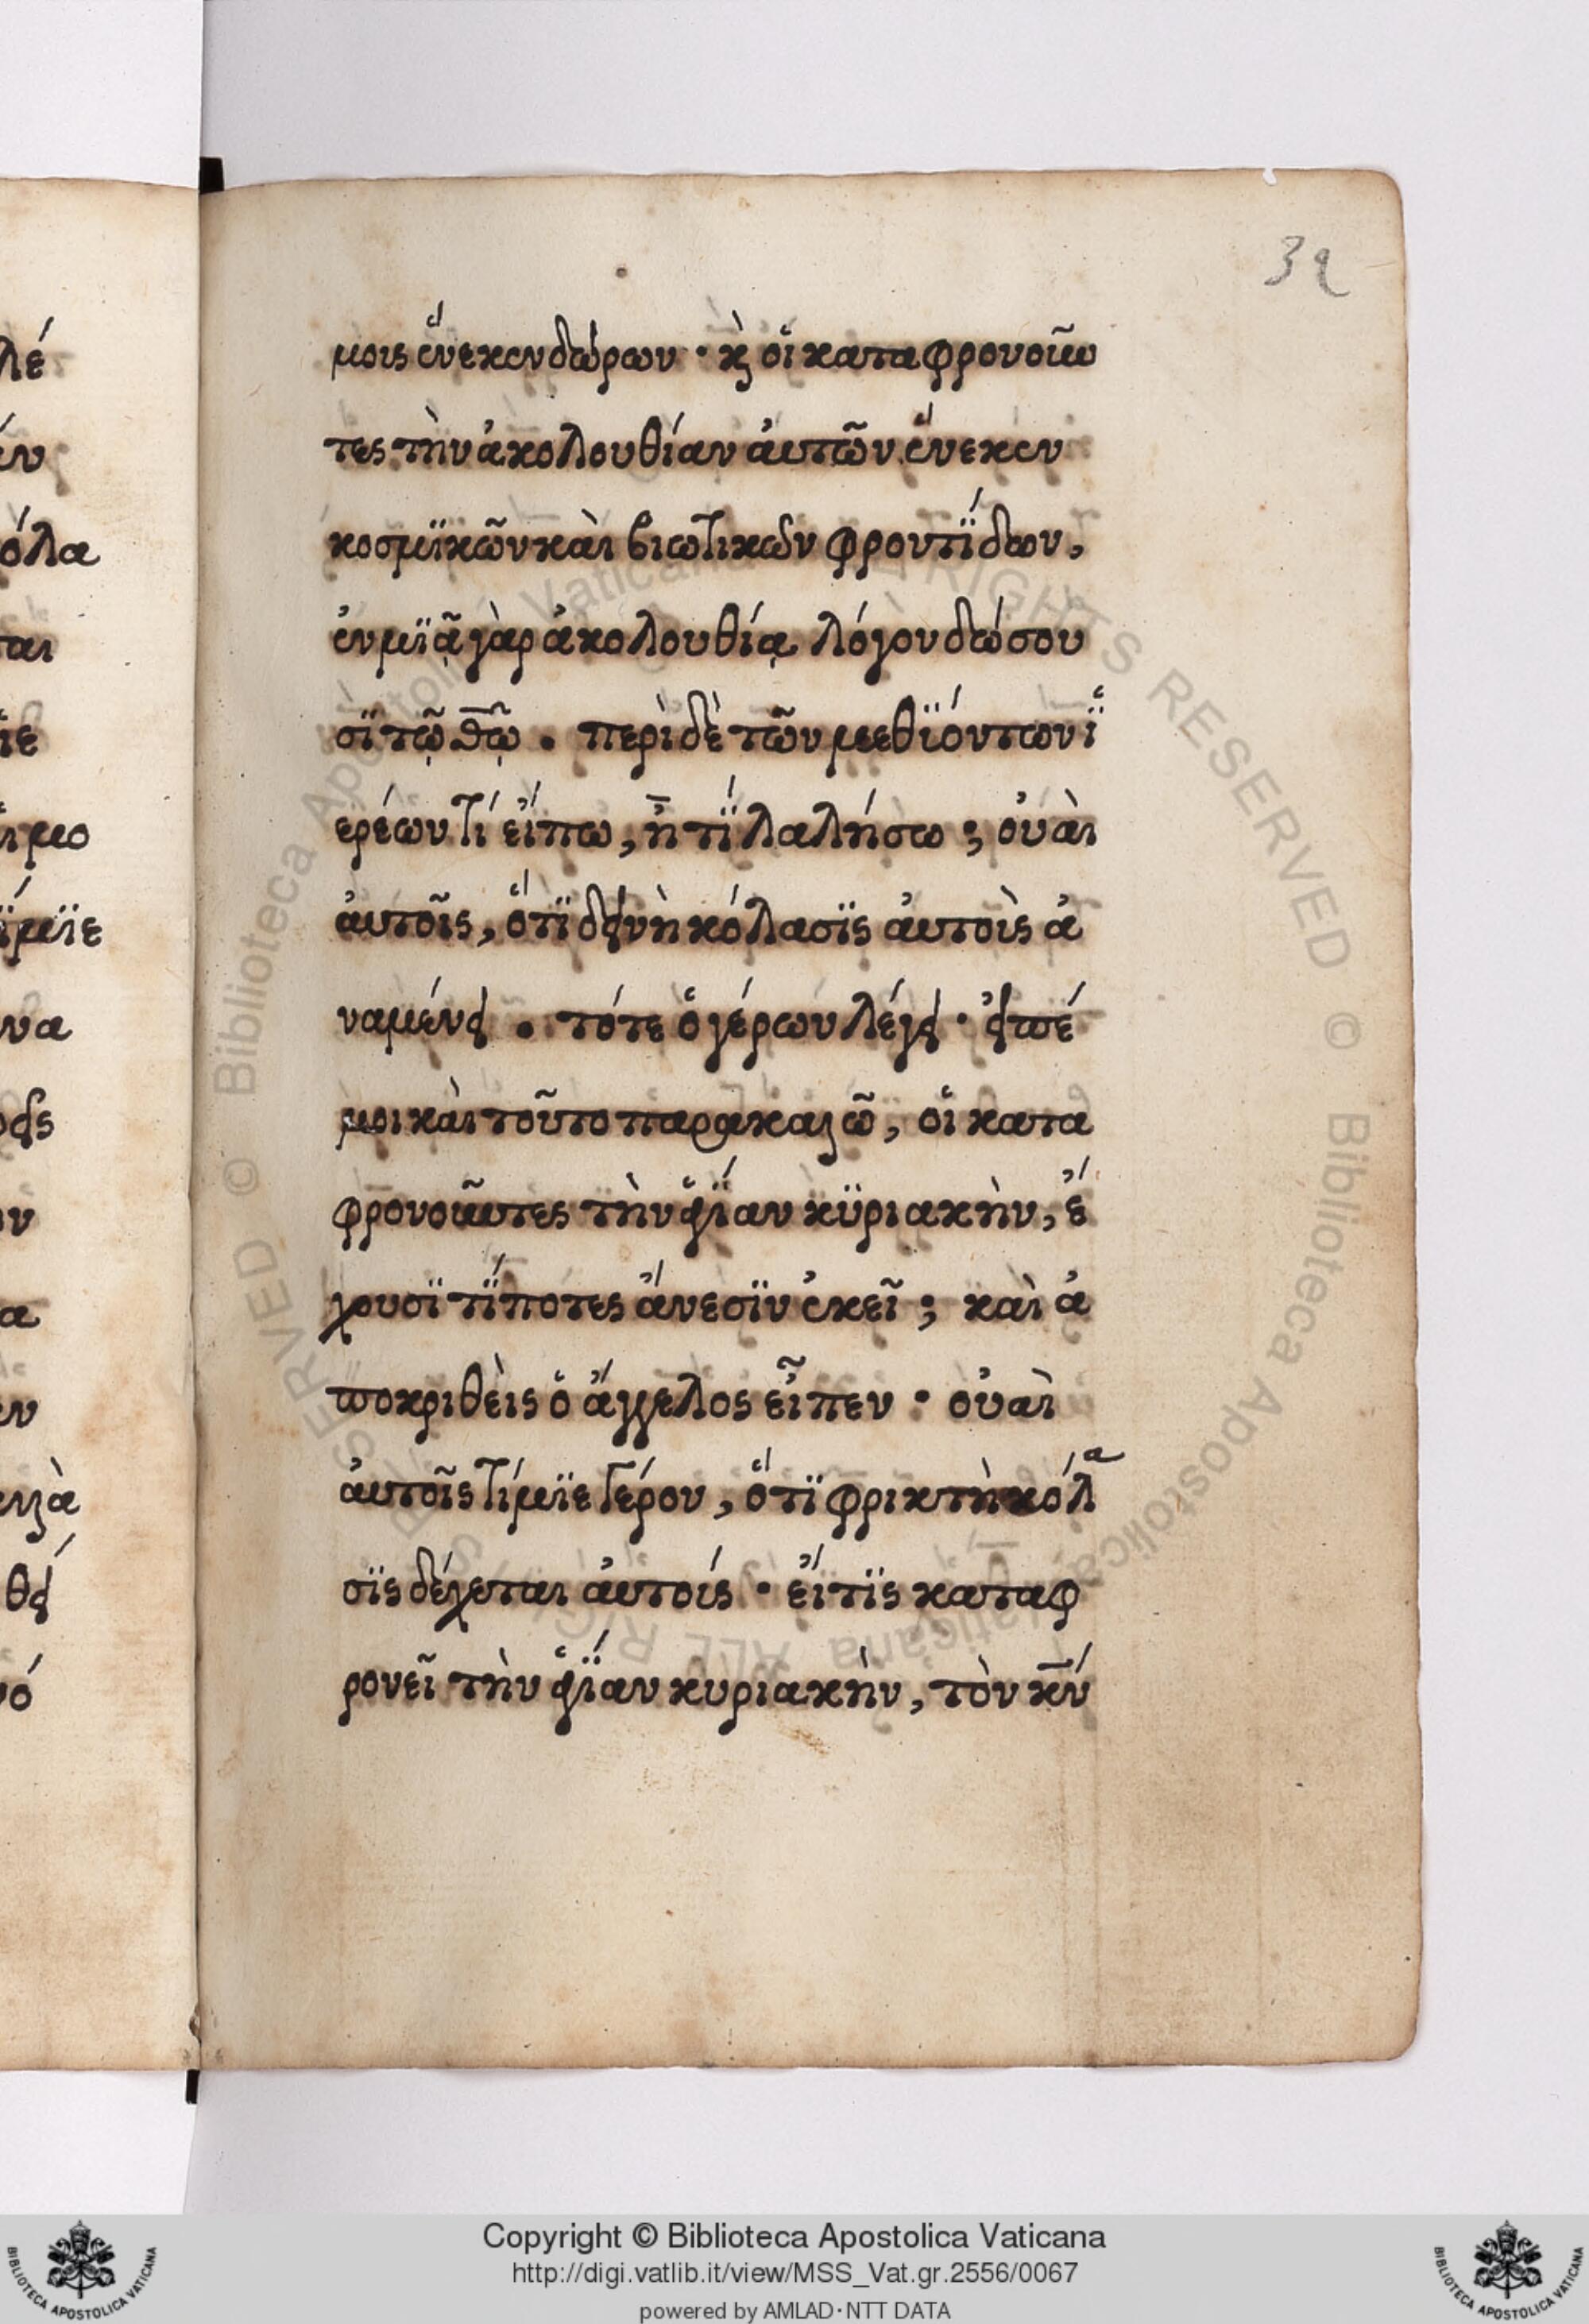 32
μοις ἕνεκεν δώρων · κ̀ οἱ καταφρονοῦν
τες τὴν ἀκολουθίαν ἀυτῶν ἕνεκεν
κοσμϊκῶν κὰι βιωτικων φροντΐδων,
ἐν μϊᾷ γὰρ ἀκολουθίᾳ λόγον δώσου
σϊ τῷ θ̅ῷ . περὶ δὲ τῶν μεθϊόντων ϊ
ερέων τί εἴπω, ἢ τΐ λαλήσω ; ὀυὰι
ἀυτοῖς, ὅτϊ δεινὴ κόλασϊς ἀυτοὶς ἀ
ναμένει . τότε ὁ γέρων λέγει · εἰπέ
μοι κὰι τοῦτο παρακαλῶ, οἱ κατα
φρονοῦντες τὴν ἁγΐαν κϋριακὴν, ἔ
χουσϊ τΐποτες ἄνεσϊν ἐκεῖ ; καὶ ἀ
ποκριθεὶς ὁ ἄγγελος εἶπεν · ὀυαὶ
ἀυτοῖς τίμϊε γέρον, ὅτϊ φρικτὴ κόλα
σϊς δέχεται ἀυτοίς · εἴ τϊς καταφ
ρονεῖ τὴν ἁγΐαν κυριακὴν, τὸν κ̅ν́
λέ
έν
όλα
ται
ϊε
ιμο
ΐμϊε
να
εις
ον
α
εν
αλὰ
θει
νό
Copyright © Biblioteca Apostolica Vaticana
http://digi.vatlib.it/view/MSS_Vat.gr.2556/0067
powered by AMLAD·NTT DATA
BIBLIOTECA APOSTOLICA VATICANA
BIBLIOTECA APOSTOLICA VATICANA